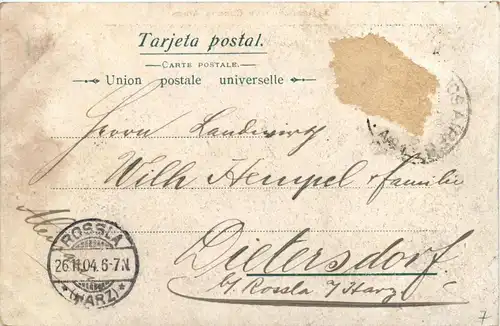 Tarjeta postal.
CARTE POSTALE.
Union postale universelle
Herrn Landwirth
Wilh Hempel & Familie
Dietersdorf
b/ Rossla a/Harz
ROSSLA
26.11.04.6-7.N
* (HARZ) *
7